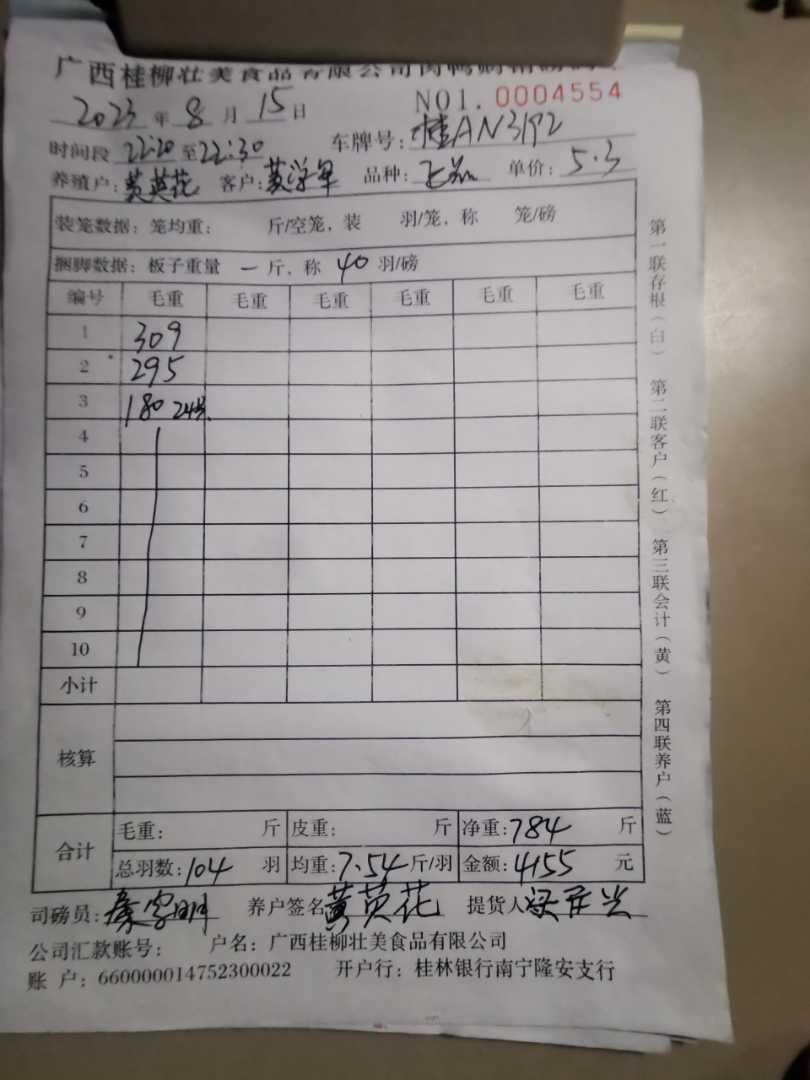 广西桂柳壮美食品有限公司肉鸭购销
2023年8月15日 NO1.0004554
时间段 22:20至22:30 车牌号:桂AN3192
养殖户:黄英花 客户:黄学军 品种: 单价:5.3
装笼数据:笼均重: 斤/空笼,装 羽/笼,称 笼/磅
捆脚数据:板子重量 一 斤,称 40 羽/磅
编号 毛重 毛重 毛重 毛重 毛重 毛重
1 309
2 295
3 180 24只
4
5
6
7
8
9
10
小计
核算
合计 毛重: 斤 皮重: 斤 净重:784 斤
总羽数:104 羽 均重:7.54斤/羽 金额:4155 元
司磅员: 养户签名 黄英花 提货人
公司汇款账号: 户名:广西桂柳壮美食品有限公司
账 户:660000014752300022 开户行:桂林银行南宁隆安支行
第一联存根(白) 第二联客户(红) 第三联会计(黄) 第四联养户(蓝)